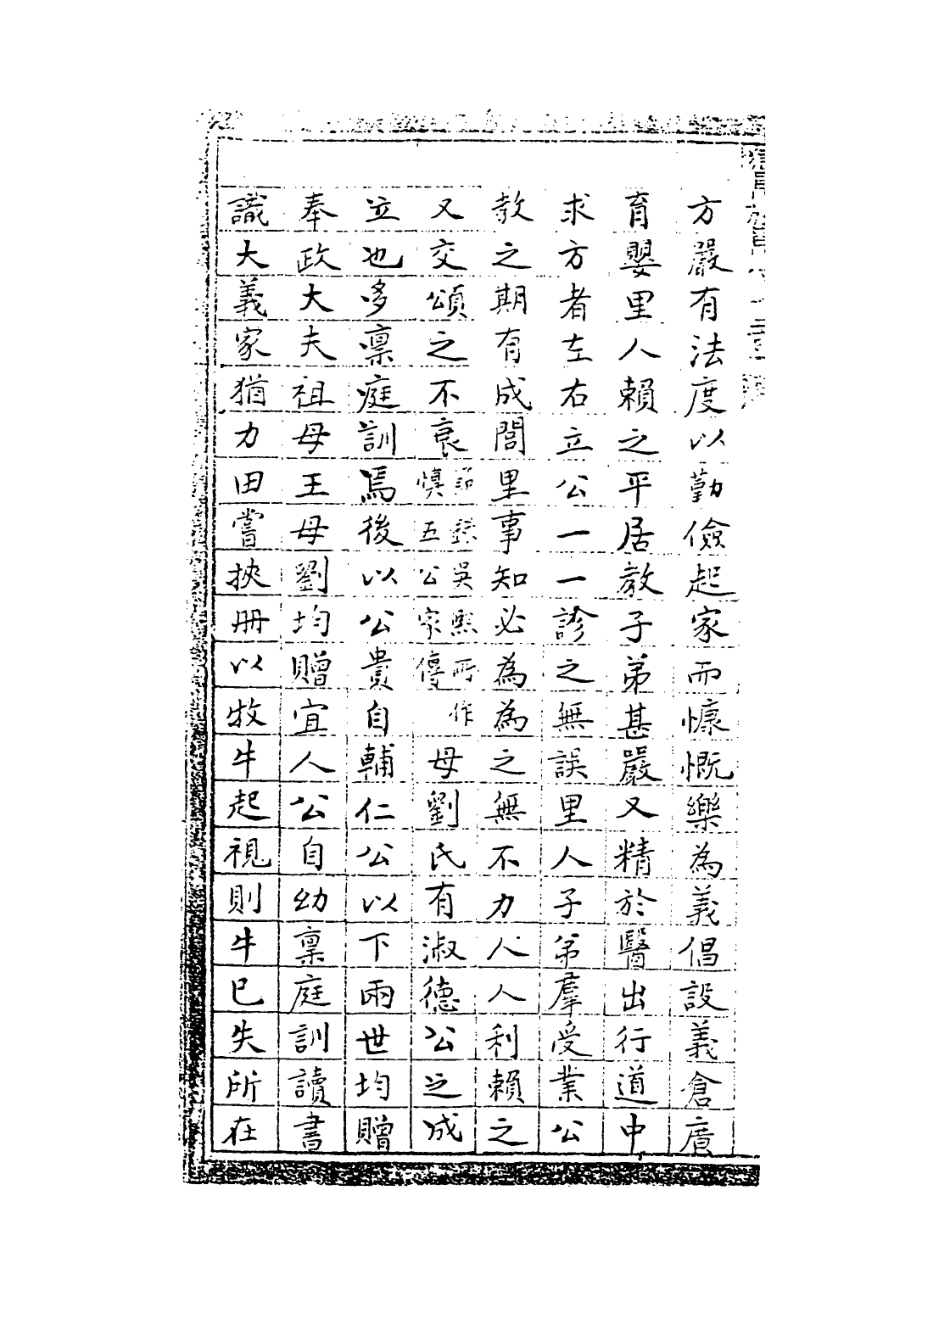 方嚴有法度以勤儉起家而慷慨樂為義倡設義倉廣
育嬰里人賴之平居教子弟甚嚴又精於醫出行道中
求方者左右立公一一診之無誤里人子弟羣受業公
教之期有成閭里事知必為為之無不力人人利賴之
又交頌之不衰節錄吳熙所作慎五公家傳母劉氏有淑德公之成
立也多禀庭訓焉後以公貴自輔仁公以下兩世均贈
奉政大夫祖母王母劉均贈宜人公自幼禀庭訓讀書
識大義家猶力田嘗挾册以牧牛起視則牛已失所在